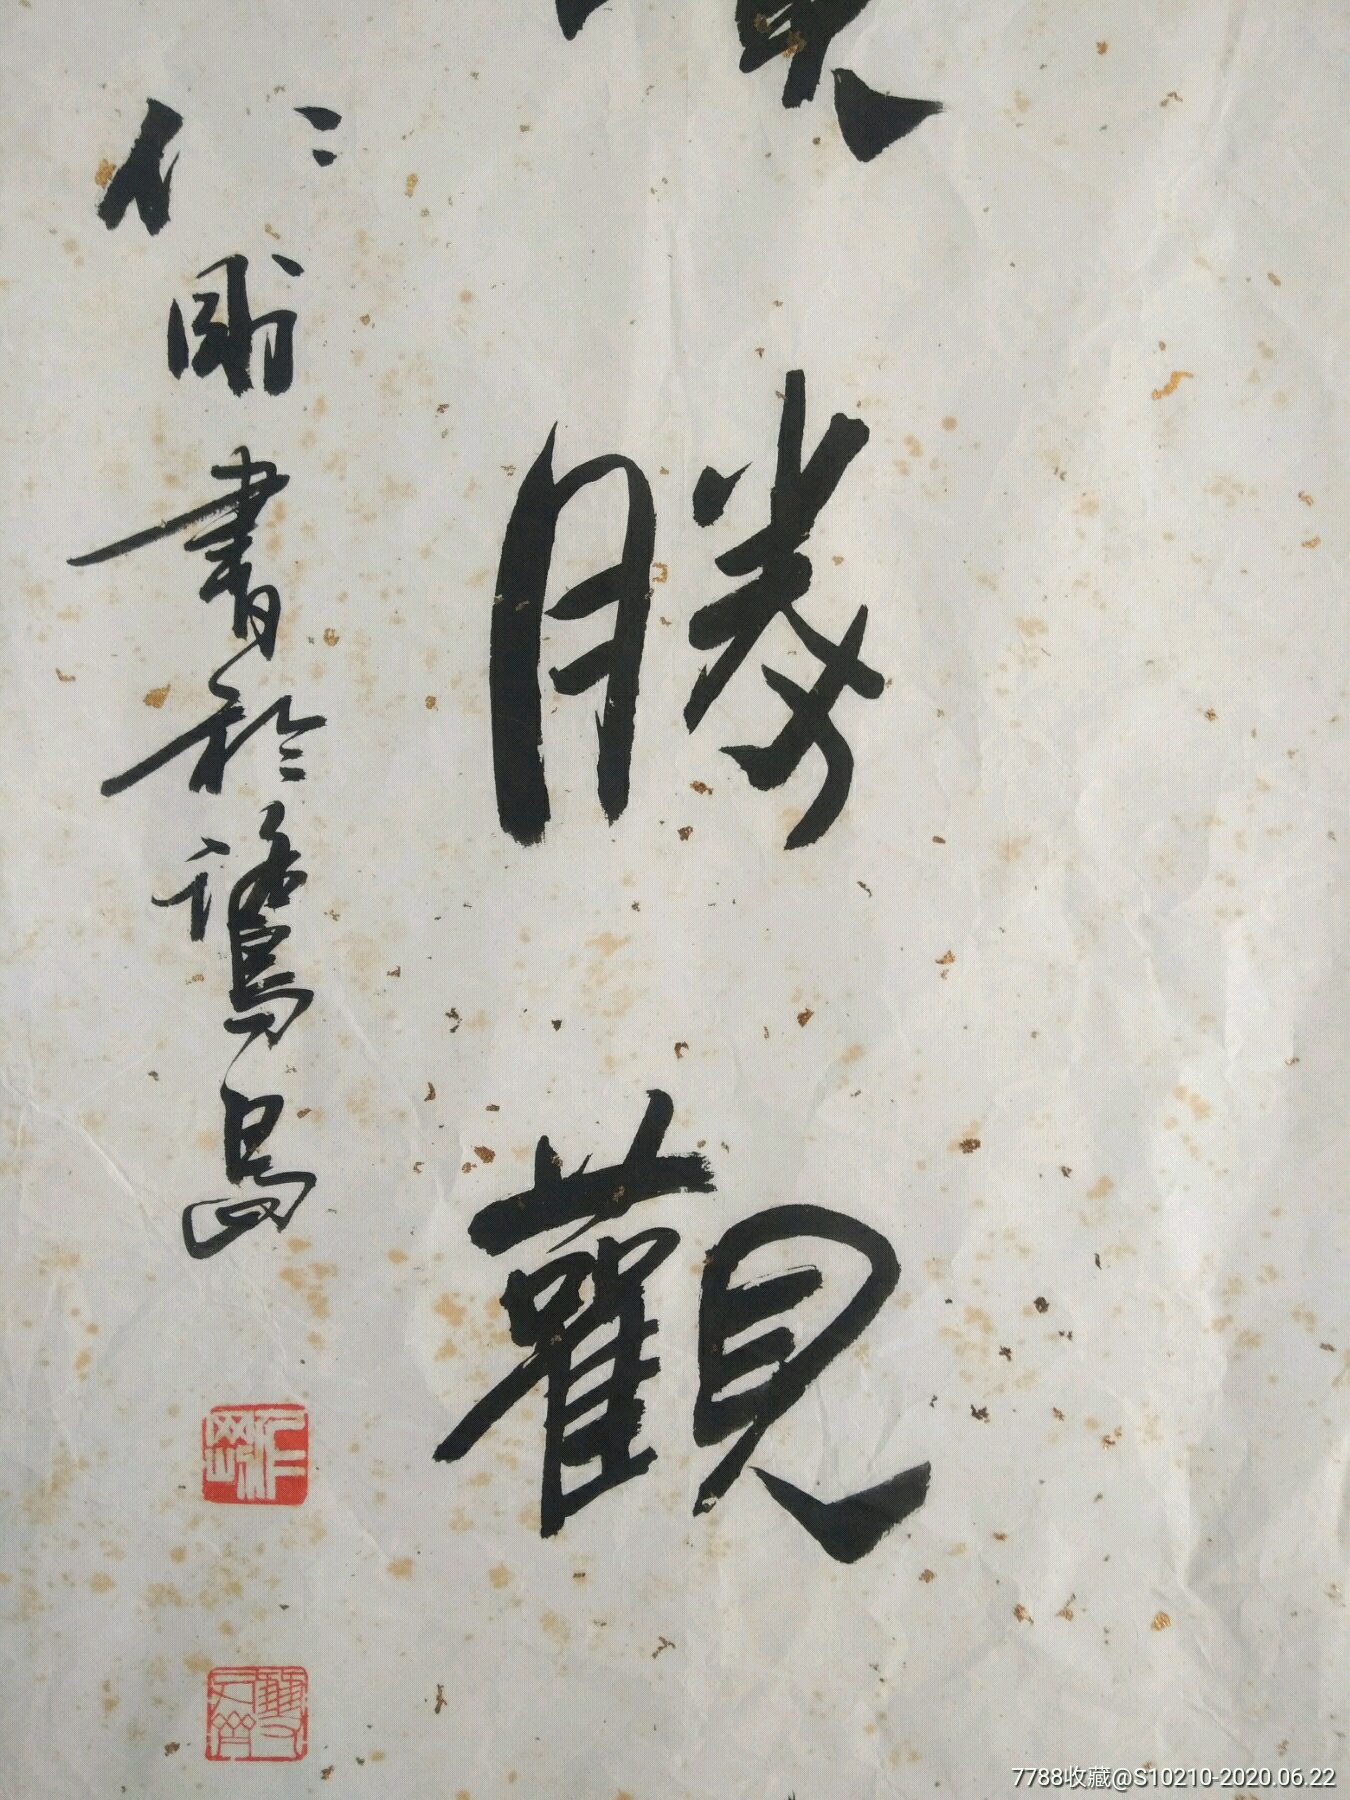 勝觀
仁剛書於鷺島
7788收藏@S10210-2020.06.22